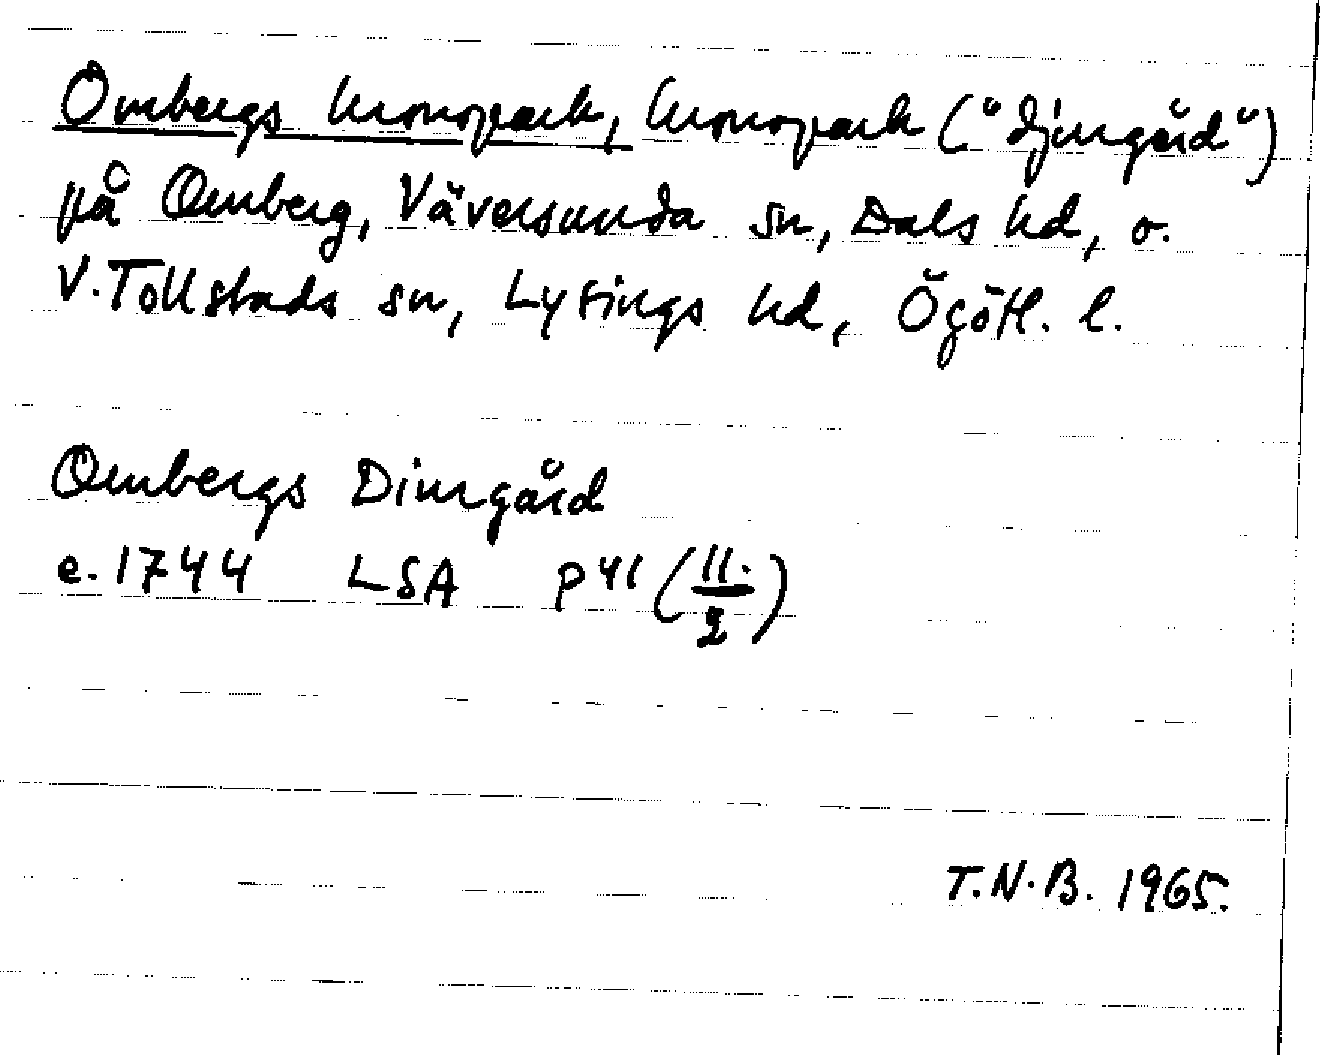 Ombergs kronopark, kronopark ("djurgård")
på Omberg, Väversunda sn, Dals hd, o.
V. Tollstads sn, Lysings hd, Ögötl. l.
Ombergs Diurgård
c. 1744 LSA P41 (11./2)
T.N.B. 1965.